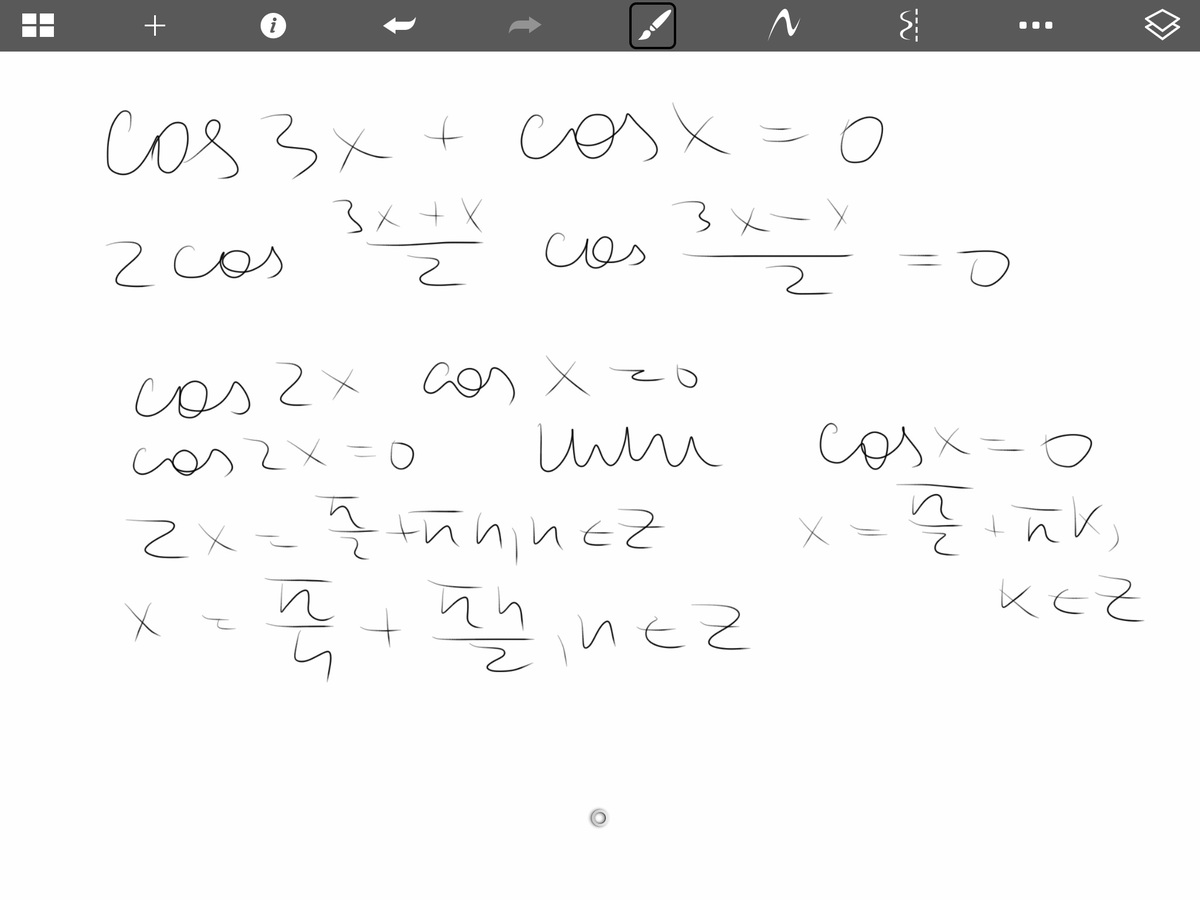 cos 3x + cos x = 0
2 cos (3x + x)/2 cos (3x − x)/2 = 0
cos 2x cos x = 0
cos 2x = 0 или cos x = 0
2x = π/2 + πn, n ∈ Z x = π/2 + πk,
k ∈ Z
x = π/4 + πn/2, n ∈ Z